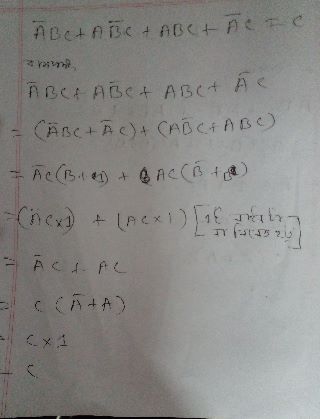 A̅BC + AB̅C + ABC + A̅C = C
বামপক্ষ,
A̅BC + AB̅C + ABC + A̅C
= (A̅BC + A̅C) + (AB̅C + ABC)
= A̅C(B+1) + AC(B̅+B)
= (A̅C×1) + (AC×1)
= A̅C + AC
= C (A̅+A)
= C×1
= C